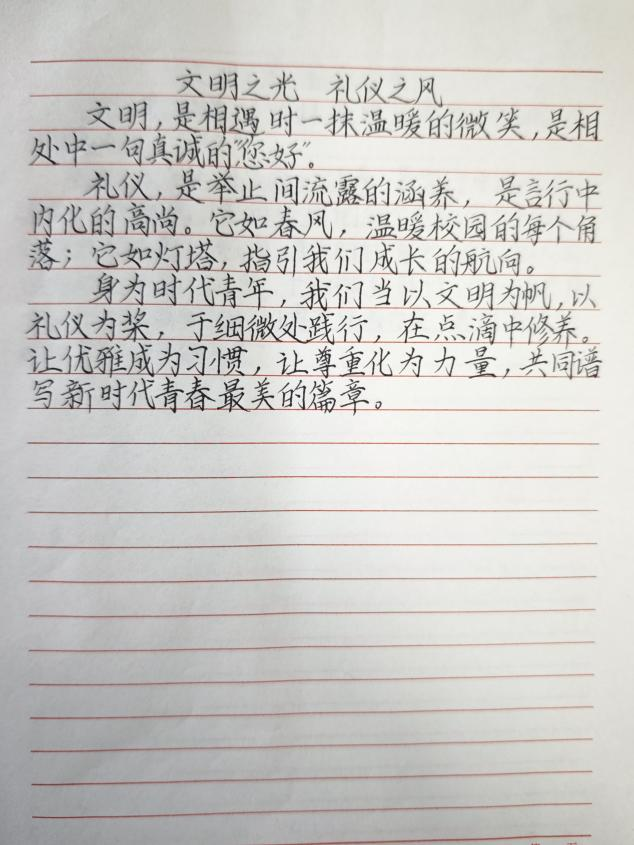 文明之光 礼仪之风
文明,是相遇时一抹温暖的微笑,是相
处中一句真诚的"您好"。
礼仪,是举止间流露的涵养,是言行中
内化的高尚。它如春风,温暖校园的每个角
落;它如灯塔,指引我们成长的航向。
身为时代青年,我们当以文明为帆,以
礼仪为桨,于细微处践行,在点滴中修养。
让优雅成为习惯,让尊重化为力量,共同谱
写新时代青春最美的篇章。